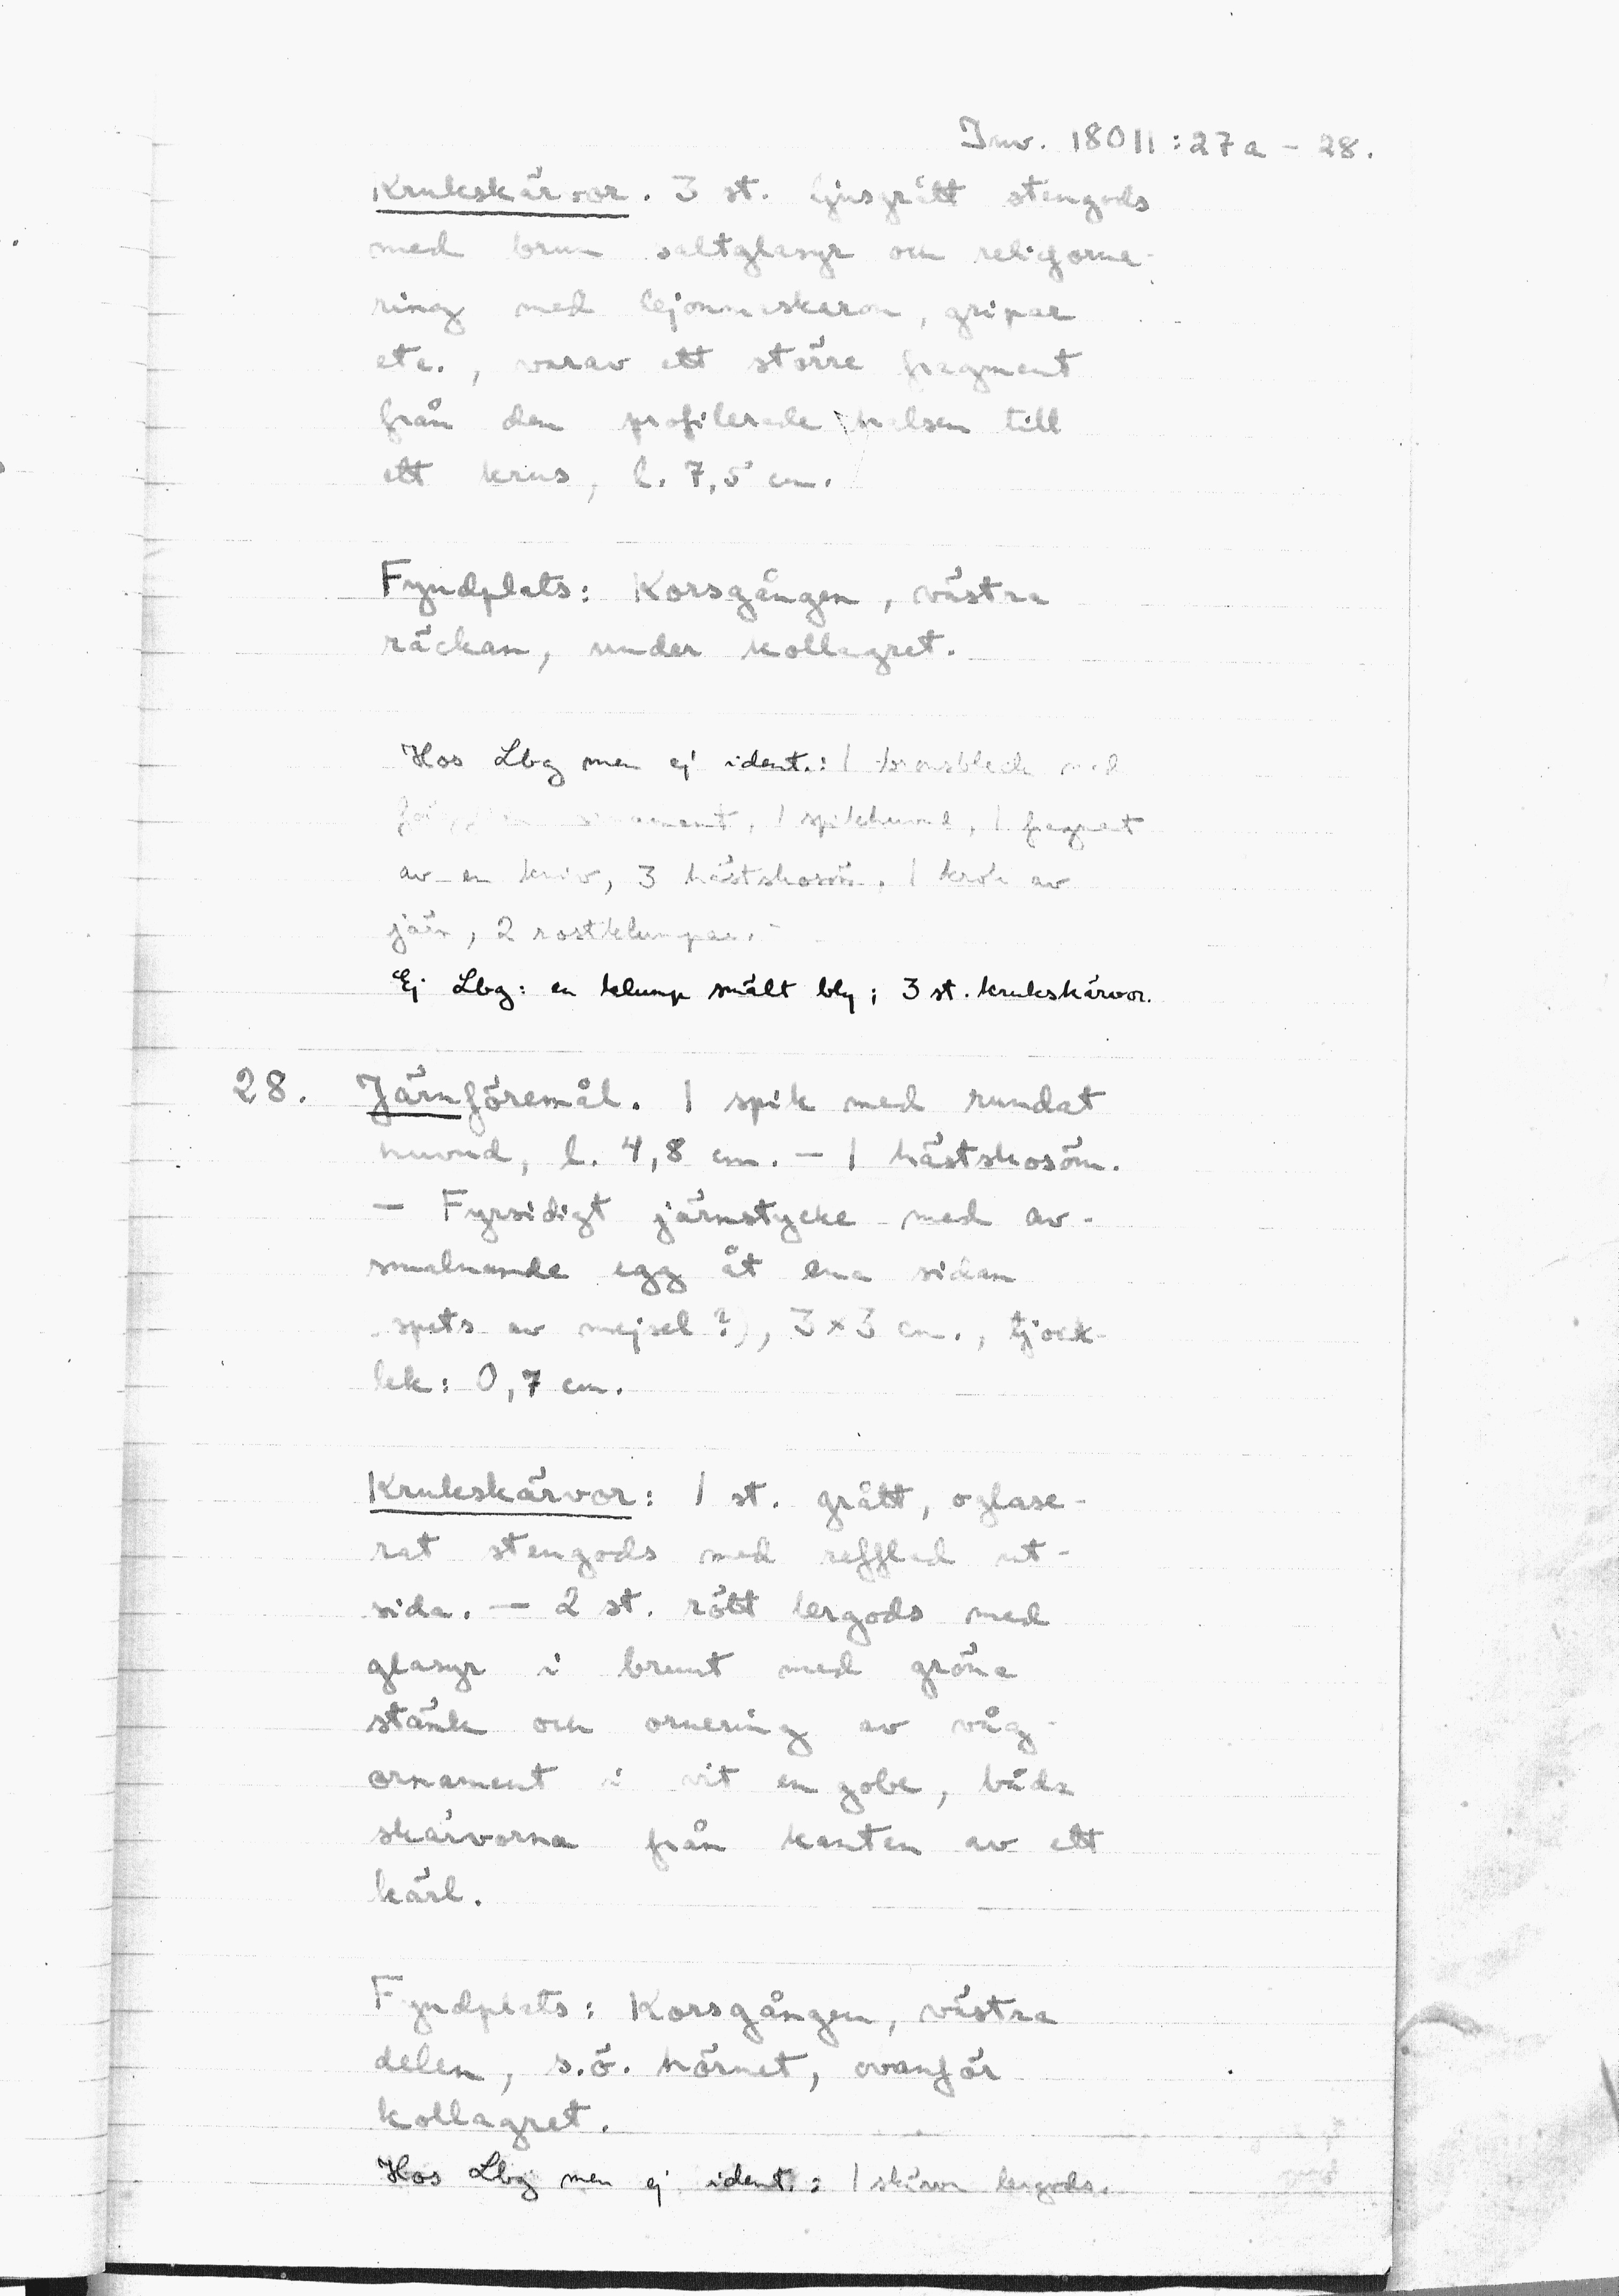 Inv. 18011:27a - 28.
Krukskärvor. 3 st. ljusgrått stengods
med brun saltglasyr och relieforne-
ring med lejonmaskaron, gripar
etc., varav ett större fragment
från den profilerade halsen till
ett krus, l. 7,5 cm.
Fyndplats: Korsgången, västra
räckan, under kollagret.
Hos Lbg men ej ident.: 1 bronsbleck med
ornament, 1 spikhuvud, 1 fragment
av en kniv, 3 hästskosöm. 1 krok av
järn, 2 rostklumpar.
Ej Lbg: en klump smält bly; 3 st. krukskärvor.
28. Järnföremål. 1 spik med rundat
huvud, l. 4,8 cm. - 1 hästskosöm.
- Fyrsidigt järnstycke med av-
smalnande egg åt ena sidan
spets av mejsel?), 3x3 cm., tjock-
lek: 0,7 cm.
Krukskärvor: 1 st. grått, oglase-
rat stengods med refflad ut-
sida. - 2 st. rött lergods med
glasyr i brunt med gröna
stänk och ornering av våg-
ornament i vit engobe, båda
skärvorna från kanten av ett
kärl.
Fyndplats: Korsgången, västra
delen, s.ö. hörnet, ovanför
kollagret.
Hos Lbg men ej ident.: 1 skärva lergods.